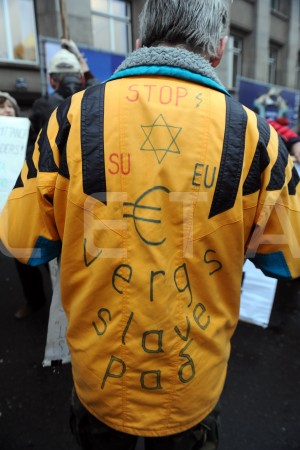 STOP
SU EU
€
Vergs
slave
pad
LETA